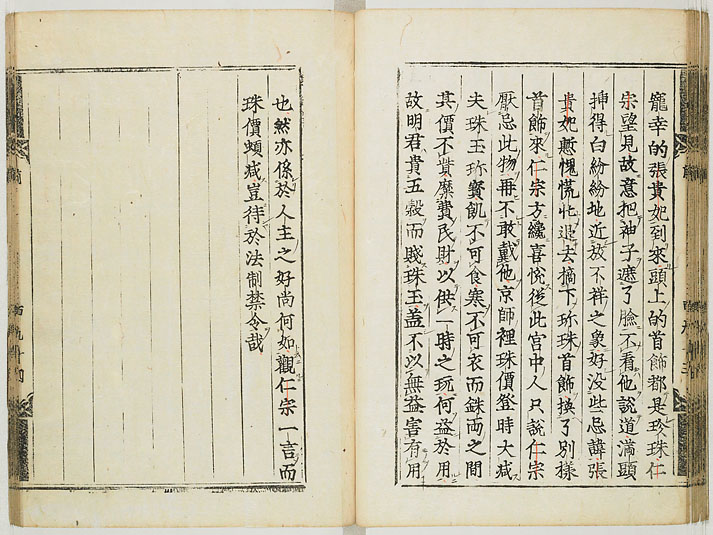 寵幸的張貴妃到來頭上的首飾都是珍珠仁
宗望見故意把袖子遮了臉不看他說道滿頭
揷得白紛紛地近放不祥之象好没些忌諱張
貴妃慙愧慌忙退去摘下珎珠首飾換了別樣
首飾來仁宗方纔喜悅從此宮中人只說仁宗
厭忌此物再不敢戴他京師裡珠價登時大减
夫珠玉珎寶飢不可食寒不可衣而銖兩之間
其價不貲糜費民財以供一時之玩何益於用
故明君貴五穀而賤珠玉盖不以無益害有用
也然亦係於人主之好尚何如觀仁宗一言而
珠價頓减豈待於法制禁令哉